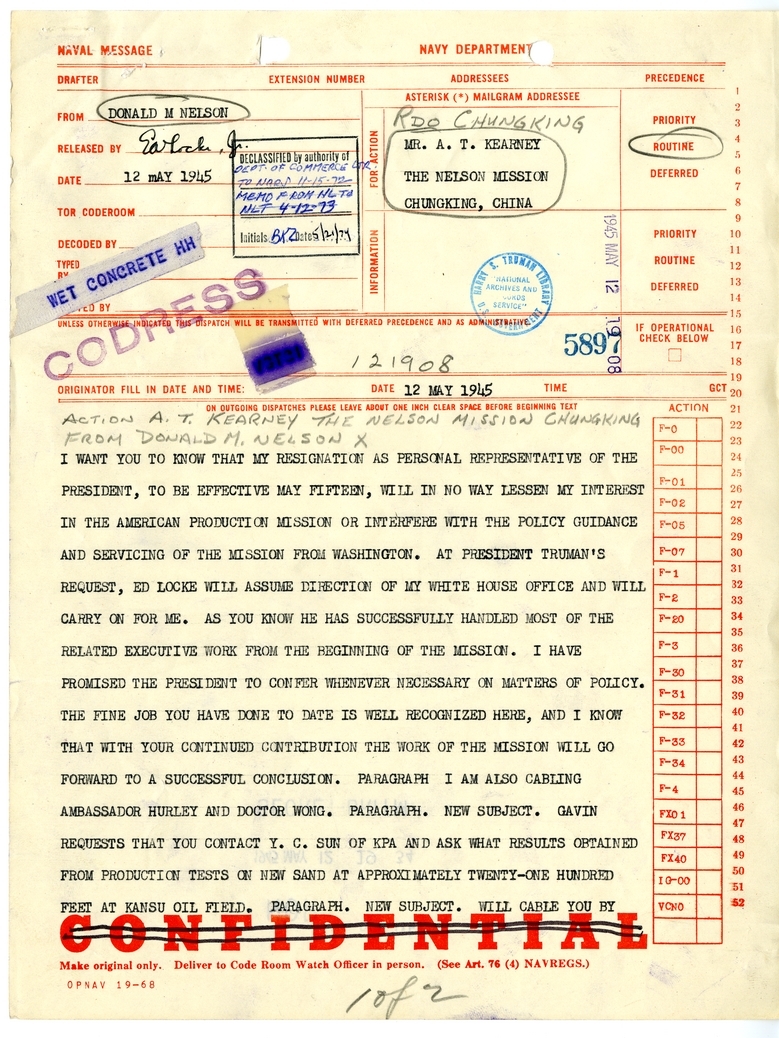 NAVAL MESSAGE NAVY DEPARTMENT
DRAFTER EXTENSION NUMBER ADDRESSEES PRECEDENCE
ASTERISK (*) MAILGRAM ADDRESSEE
FROM DONALD M NELSON
RDO CHUNGKING
PRIORITY
RELEASED BY
MR. A. T. KEARNEY
ROUTINE
DATE 12 MAY 1945
THE NELSON MISSION
DEFERRED
CHUNGKING, CHINA
FOR ACTION
DECLASSIFIED by authority of
DEPT. OF COMMERCE LTR.
TO NARS 11-15-72
MEMO FROM NL TO
NLT 4-12-73
Initials Date 5/21/74
TOR CODEROOM
DECODED BY
TYPED
BY
WET CONCRETE HH
CODRESS
INFORMATION
PRIORITY
ROUTINE
DEFERRED
HARRY S. TRUMAN LIBRARY
"NATIONAL
ARCHIVES AND
SERVICE"
U.S. GOVERNMENT
1945 MAY 12 19 08
UNLESS OTHERWISE INDICATED THIS DISPATCH WILL BE TRANSMITTED WITH DEFERRED PRECEDENCE AND AS ADMINISTRATIVE
5897
IF OPERATIONAL
CHECK BELOW
121908
ORIGINATOR FILL IN DATE AND TIME: DATE 12 MAY 1945 TIME GCT
ON OUTGOING DISPATCHES PLEASE LEAVE ABOUT ONE INCH CLEAR SPACE BEFORE BEGINNING TEXT
ACTION A. T. KEARNEY THE NELSON MISSION CHUNGKING
FROM DONALD M. NELSON X
I WANT YOU TO KNOW THAT MY RESIGNATION AS PERSONAL REPRESENTATIVE OF THE
PRESIDENT, TO BE EFFECTIVE MAY FIFTEEN, WILL IN NO WAY LESSEN MY INTEREST
IN THE AMERICAN PRODUCTION MISSION OR INTERFERE WITH THE POLICY GUIDANCE
AND SERVICING OF THE MISSION FROM WASHINGTON. AT PRESIDENT TRUMAN'S
REQUEST, ED LOCKE WILL ASSUME DIRECTION OF MY WHITE HOUSE OFFICE AND WILL
CARRY ON FOR ME. AS YOU KNOW HE HAS SUCCESSFULLY HANDLED MOST OF THE
RELATED EXECUTIVE WORK FROM THE BEGINNING OF THE MISSION. I HAVE
PROMISED THE PRESIDENT TO CONFER WHENEVER NECESSARY ON MATTERS OF POLICY.
THE FINE JOB YOU HAVE DONE TO DATE IS WELL RECOGNIZED HERE, AND I KNOW
THAT WITH YOUR CONTINUED CONTRIBUTION THE WORK OF THE MISSION WILL GO
FORWARD TO A SUCCESSFUL CONCLUSION. PARAGRAPH I AM ALSO CABLING
AMBASSADOR HURLEY AND DOCTOR WONG. PARAGRAPH. NEW SUBJECT. GAVIN
REQUESTS THAT YOU CONTACT Y. C. SUN OF KPA AND ASK WHAT RESULTS OBTAINED
FROM PRODUCTION TESTS ON NEW SAND AT APPROXIMATELY TWENTY-ONE HUNDRED
FEET AT KANSU OIL FIELD. PARAGRAPH. NEW SUBJECT. WILL CABLE YOU BY
ACTION
F-0
F-00
F-01
F-02
F-05
F-07
F-1
F-2
F-20
F-3
F-30
F-31
F-32
F-33
F-34
F-4
FX01
FX37
FX40
IG-00
VCNO
1
2
3
4
5
6
7
8
9
10
11
12
13
14
15
16
17
18
19
20
21
22
23
24
25
26
27
28
29
30
31
32
33
34
35
36
37
38
39
40
41
42
43
44
45
46
47
48
49
50
51
52
CONFIDENTIAL
Make original only. Deliver to Code Room Watch Officer in person. (See Art. 76 (4) NAVREGS.)
OPNAV 19-68
1 of 2